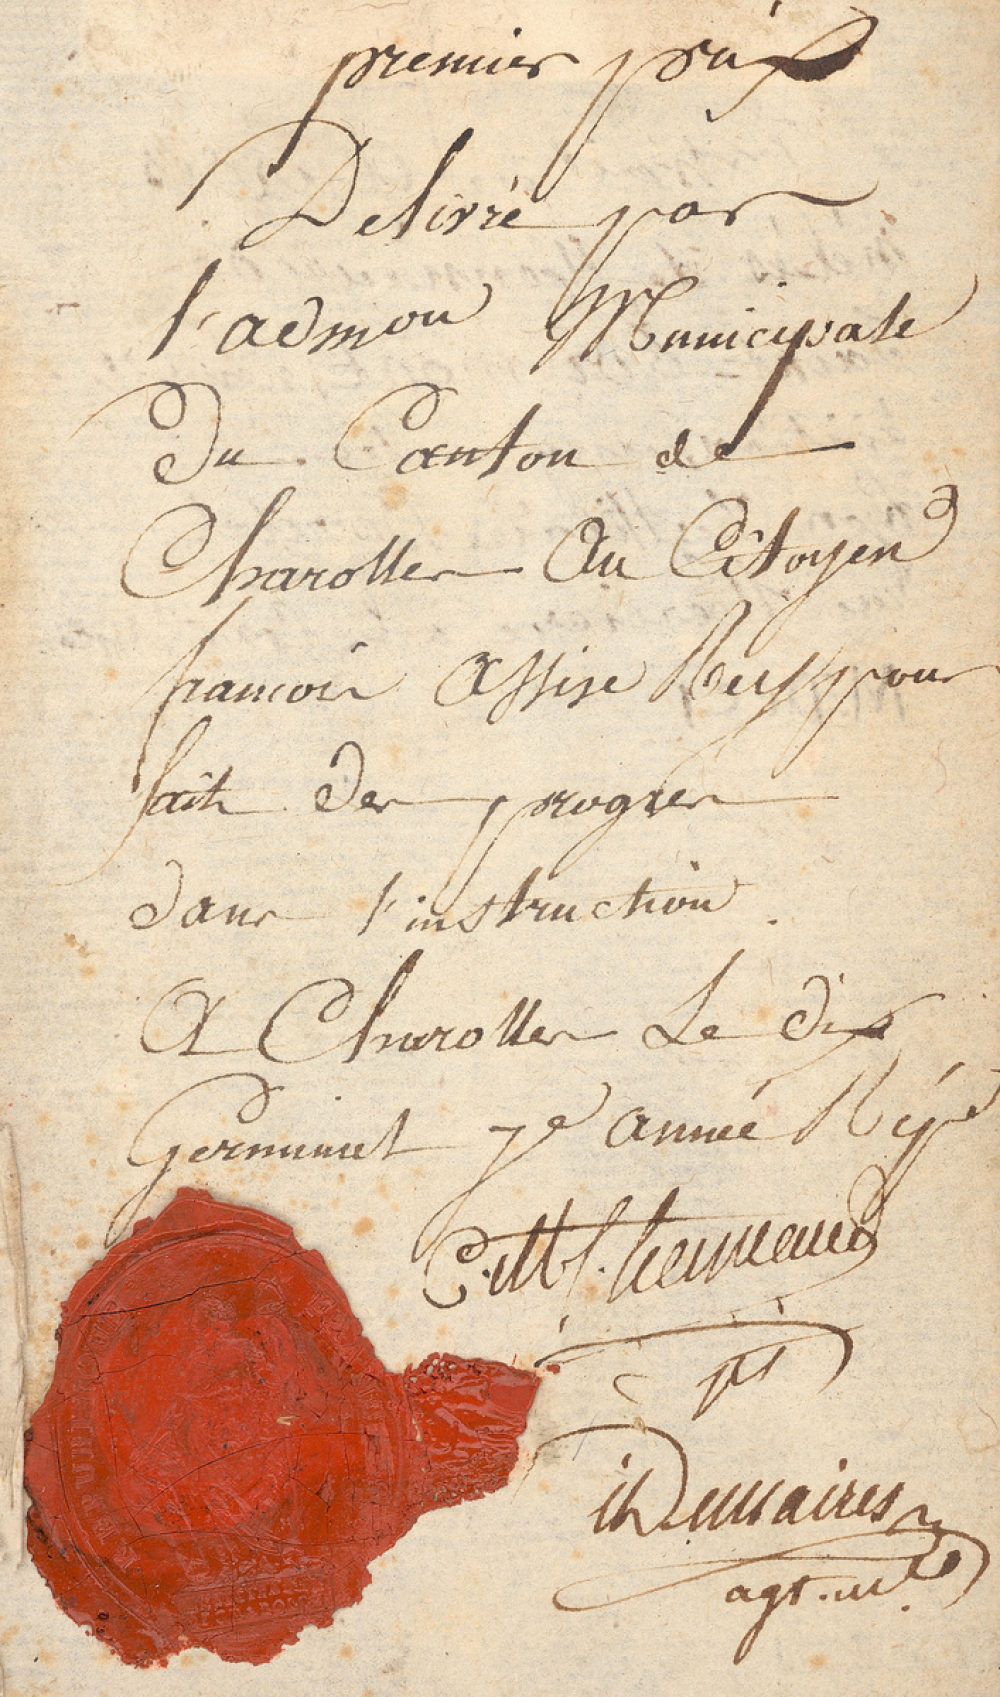 premier prix
Delivré par
l'admon Municipale
Du Canton de
Charolles Au Citoyen
francois Assise Rey pour
fait des progres
dans l'instruction.
A Charolles Le dix
Germinal 7e année Répe
pt
Demaires
agt. ml.